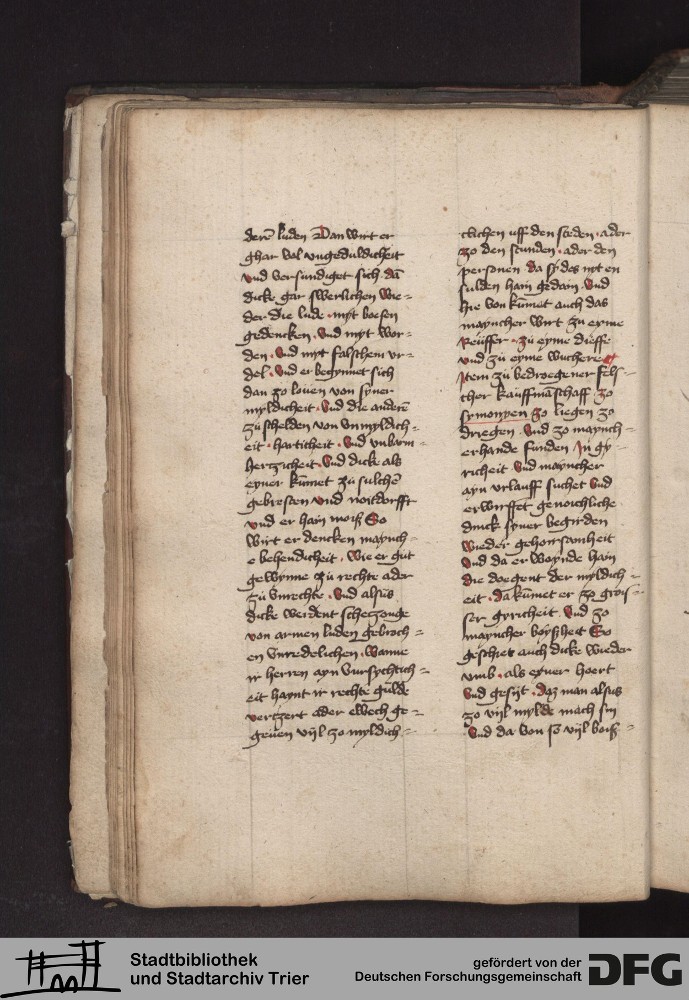 derē luden Dan wirt er
ghar val vngeduldicheit
vnd versundiget sich dā
dicke gar swerlichen wie=
der die lude myt boesen
gedencken vnd myt wor=
den vnd myt falschem vr=
del vnd er begynnet sich
dan zo louen von syner
myldicheit vnd die anderē
zü schelden von vnmyldich=
eit harticheit vnd vnbarm=
hertzicheit vnd dicke als
eyner kūmet zü sulchē
gebresten vnd noitdorfft
vnd er hain moiß So
wirt er dencken maynch=
e behendicheit wie er gut
gewynne zü rechte ader
zü vnrechte vnd alsus
dicke werdent
von armen luden gebroch=
en vnredelichen wanne
ir herren ayn vursychtich=
eit haynt ir rechte gulde
vertzert ader ewech ge=
geuen vijl zo myldich=
clichen uff den steden ader
zo den stunden ader den
personen da sy des nyt en
sulden hain gedain vnd
hie von kūmet auch das
mayncher wirt zu eyme
reüffer zü eyme dieffe
vnd zü eyme wucherer
Item zü bedroegener fels=
cher kauffmāschaff zo
symonyen zo liegen zo
driegen vnd zo maynch=
erhande funden in gy=
richeit vnd mayncher
ayn vrlauff suchet vnd
erwirffet genoichliche
duick syner begirden
wieder gehoirsamheit
vnd da er woynde hain
die doegent der myldich=
eit da kūmet er zo grois=
ser gyricheit vnd zo
mayncher boyßheit So
geschiet auch dicke wieder
vmb als eyner hoert
vnd gesijt daz man alsus
zo vijl mylde mach sin
vnd da von so vijl boiß=
Stadtbibliothek
und Stadtarchiv Trier
gefördert von der
Deutschen Forschungsgemeinschaft
DFG